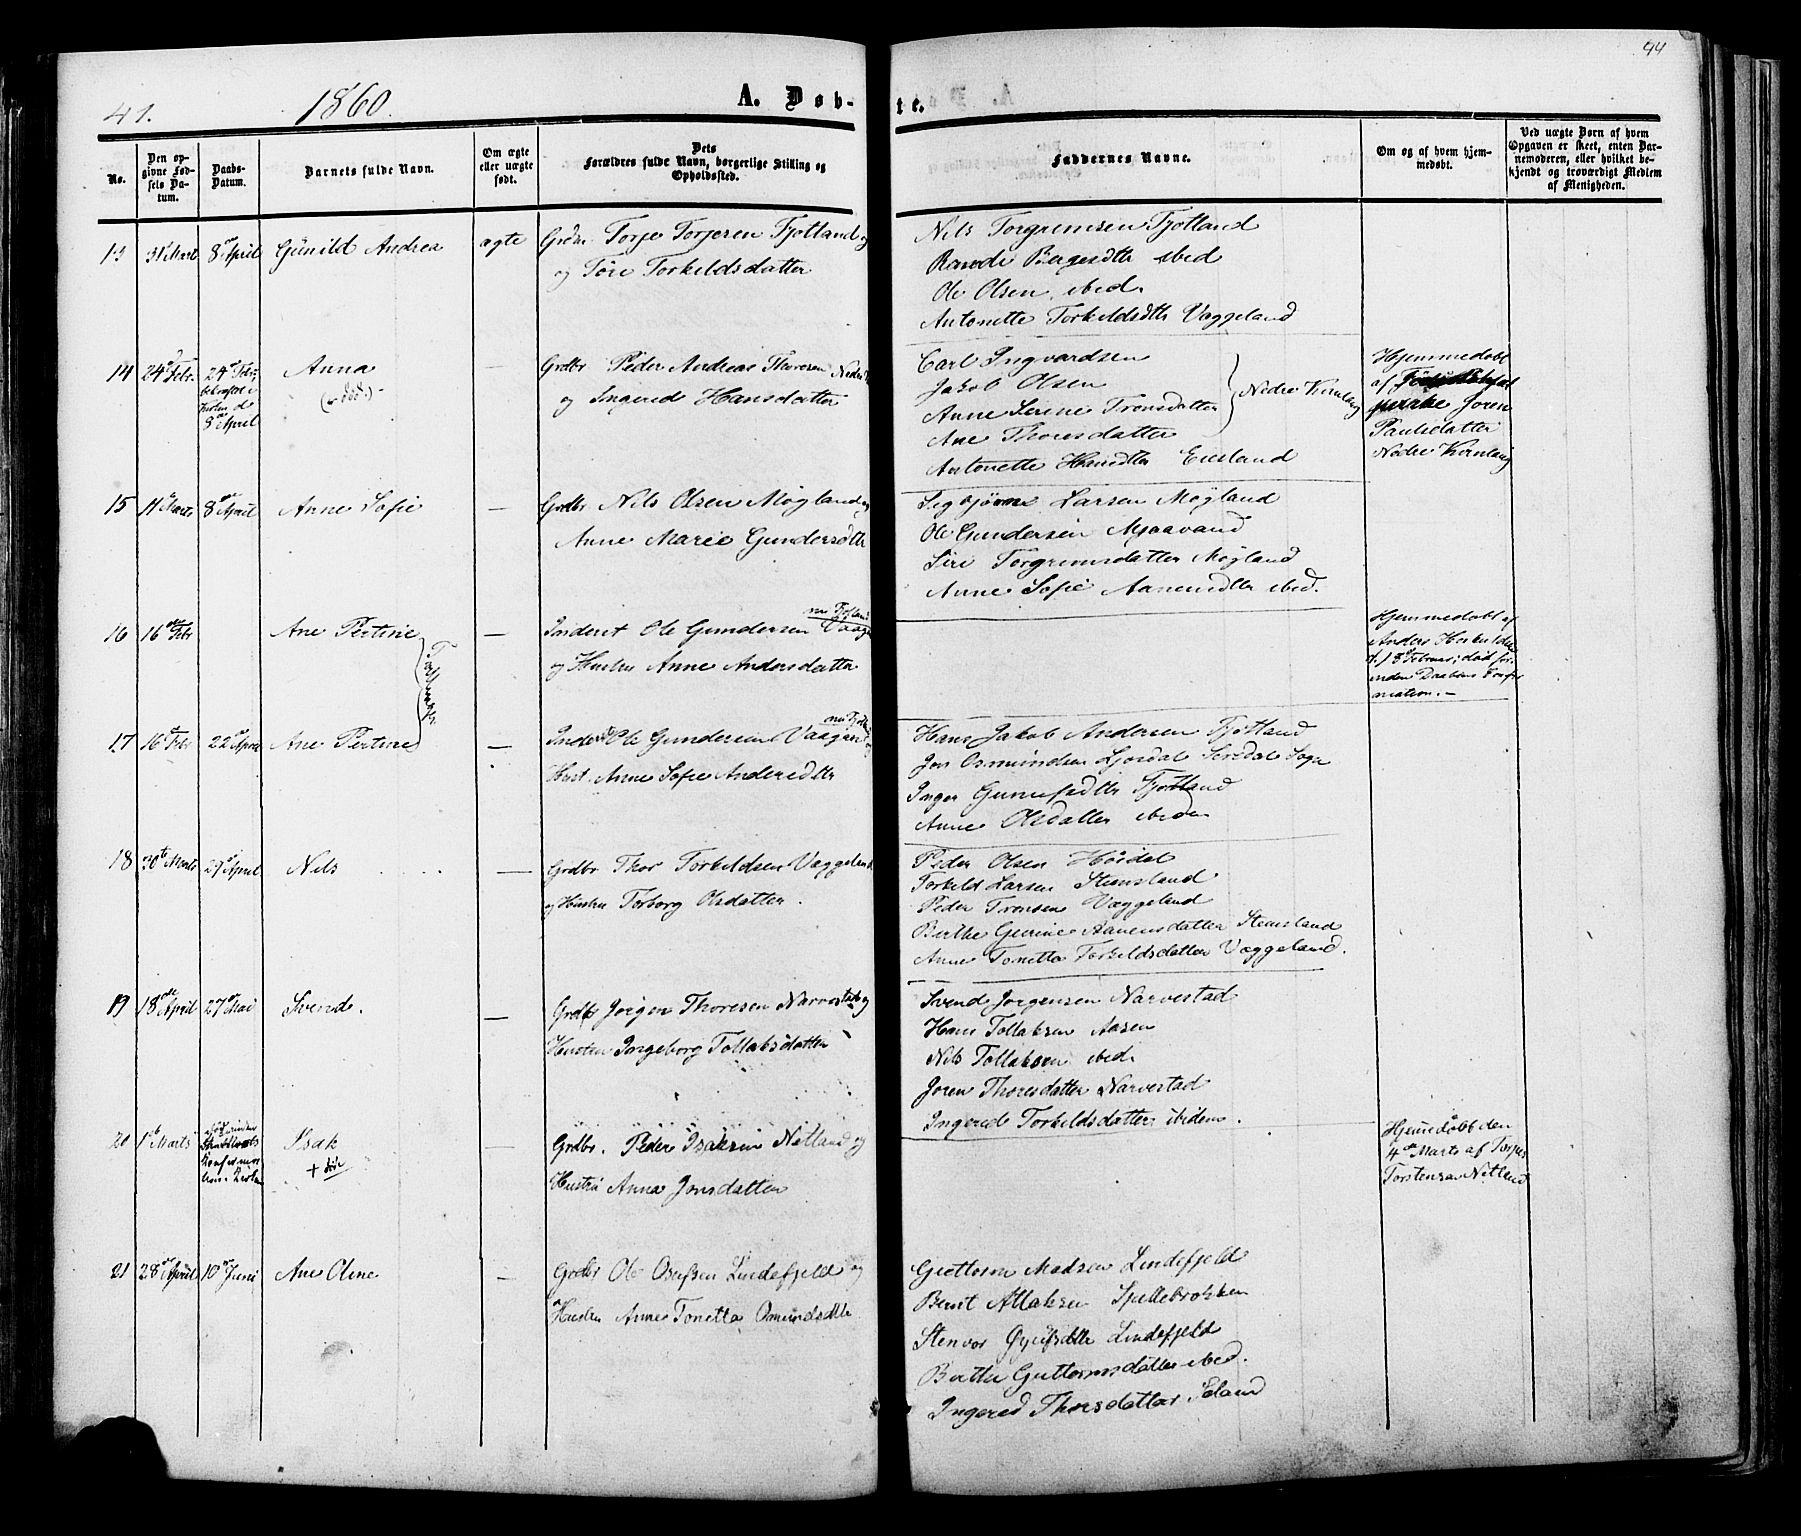 44
41.
1860.
A. Døb-
te.
No.
Den op-
givne Fød-
sels Da-
tum.
Daabs-
Datum.
Barnets fulde Navn.
Om ægte
eller uægte
født.
Dets
Forældres fulde Navn, borgerlige Stilling og
Opholdssted.
Faddernes Navne.
Om og af hvem hjem-
medøbt.
Ved uægte Børn af hvem
Opgaven er skeet, enten Bar-
nemoderen, eller hvilket be-
kjendt og troværdigt Medlem
af Menigheden.
13
31 Mart
8de April
Gunild Andrea
ægte
Grdbr. Torje Torjesen Fjotland
og Tore Torkildsdatter
Nils Torgrimsen Fjotland
Rande Bergesdttr ibid
Ole Olsen ibid.
Antonette Torkildsdttr Væggeland
14
24 Febr.
24de Febr.
bekræftet i
Kirken d.
8de April
Anna
(døde)
—
Grdbr Peder Andreas Thoresen Nedre
og Ingerid Hansdatter
Carl Ingvardsen
Jakob Olsen
Anne Serine Tronsdatter
Ane Thoresdatter
Nedre Kvinlog
Antonette Hansdtter Eiesland
Hjemmedøbt
af
Joren
Paulsdatter
Nedre Kvinlog
15
11 Marts
8de April
Anne Sofie
—
Grdbr Nils Olsen Møgland og
Anne Marie Gundersdttr
Sigbjørn Larsen Møgland
Ole Gundersen Mjaavand
Siri Torgrimsdatter Møgland
Anne Sofie Aanensdttr ibid.
16
16de Febr
Ane Pertine
—
Inderst Ole Gundersen Vaagen
nu Fjotland
og Hustru Anne Andersdatter
Hjemmedøbt af
Anders
d. 18de Februar; død for-
inden Daabens Confir-
mation. —
Tvillinger
17
16 Febr
22de April
Ane Pertine
—
Inderst Ole Gundersen Vaagen
nu Fjotland
Hust. Anne Sofie Andersdttr
Hans Jakob Andersen Fjotland
Jon Osmundsen Ljosdal Siredal Sogn
Inger Gunufsdttr Fjotland
Anne Olsdatter ibidem
18
30te Marts
29de April
Nils
—
Grdbr Thor Torkildsen Væggeland
og Hustru Torborg Olsdatter.
Peder Olsen Høidal
Torkild Larsen Stensland
Peder Tronsen Væggeland
Birthe Gurine Aanensdatter Stensland
Anne Tonetta Torkildsdatter Væggeland.
19
18de April
27de Mai
Svend.
—
Grdbr Jørgen Thoresen Narvestad og
Hustru Ingeborg Tollaksdatter
Svend Jørgensen Narvestad
Hans Tollaksen Aasen
Nils Tollaksen ibid.
Joren Thoresdatter Narvestad
Ingerid Torkildsdatter ibidem.
20
1ste Marts
Isak
+ døde
—
Grdbr. Peder Isaksen Netland og
Hustru Anna Jonsdatter
Hjemmedøbt den
4de Marts af Torjus
Torstensen Netland
21
28de April
10de Juni
Ane Oline
—
Grdbr Ole Osufsen Lindefjeld og
Hustru Anne Tonetta Osmundsdttr
Guttorm Madsen Lindefjeld
Bent Atlaksen
Stenvor Lindefjeld
Birthe Guttormsdatter ibid.
Ingerid Thorsdatter Eland